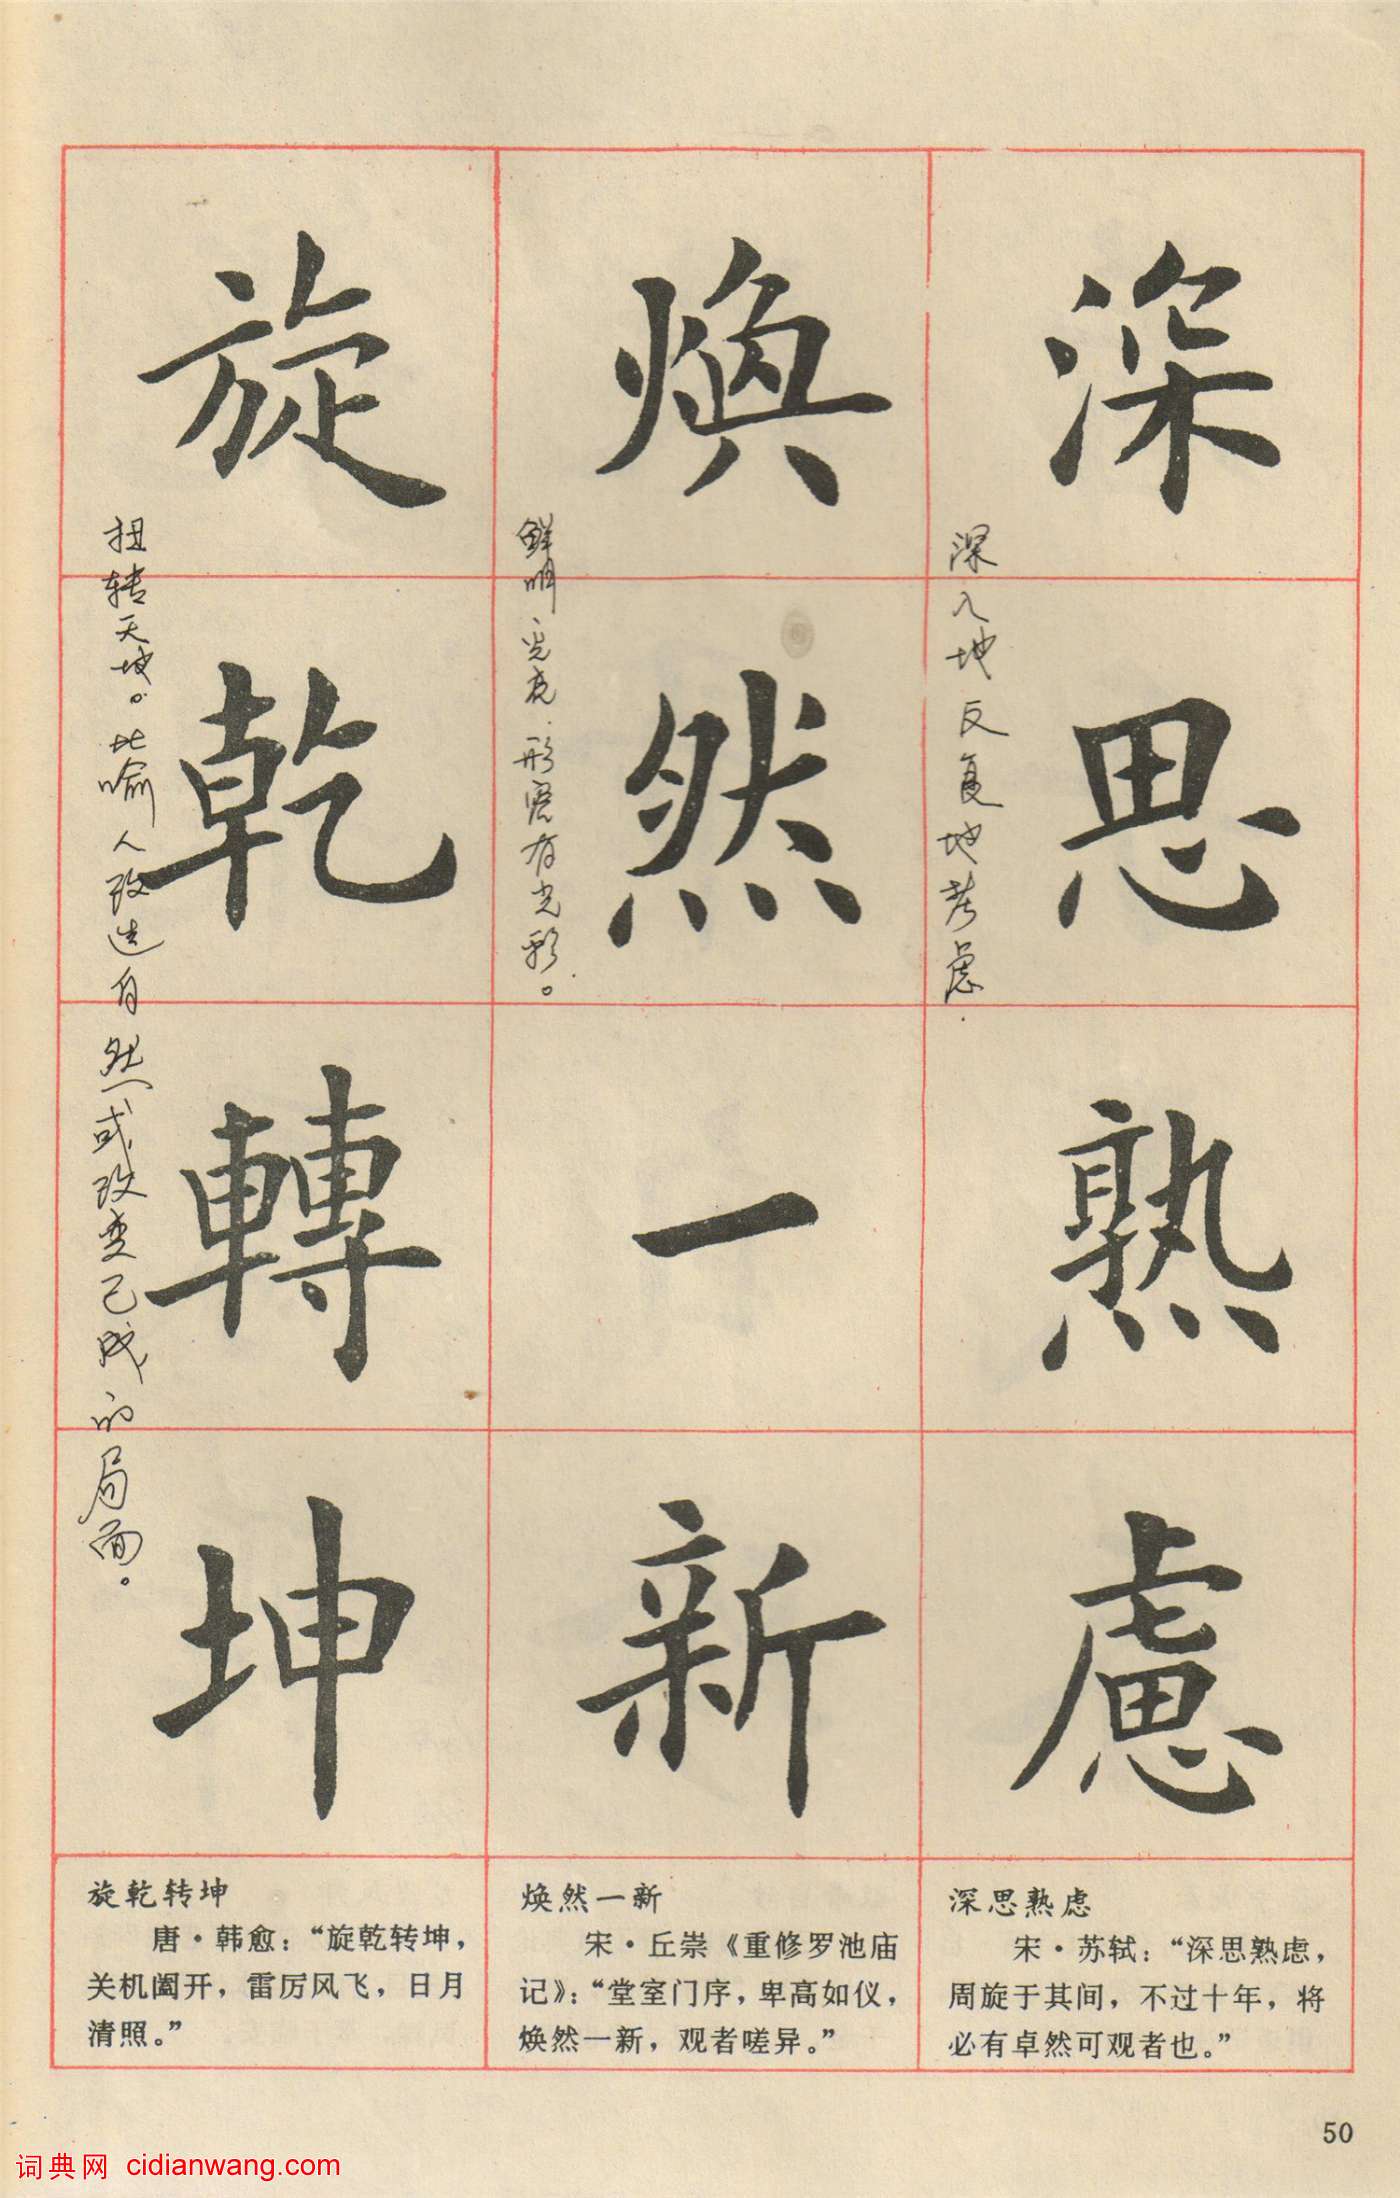 深思熟慮
深入地反复地考虑.
煥然一新
鲜明、光亮.形容有光彩.。
旋乾轉坤
扭转天地。比喻人改造自然或改变已成的局面。
深思熟虑
宋·苏轼：“深思熟虑，
周旋于其间，不过十年，将
必有卓然可观者也。”
焕然一新
宋·丘崇《重修罗池庙
记》：“堂室门序，卑高如仪，
焕然一新，观者嗟异。”
旋乾转坤
唐·韩愈：“旋乾转坤，
关机阖开，雷厉风飞，日月
清照。”
50
词典网 cidianwang.com